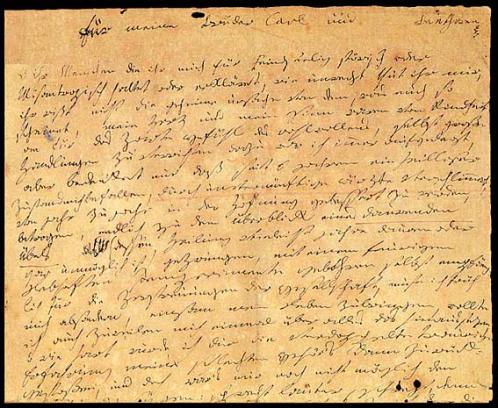 für meine Brüder Carl und Beethoven
O ihr Menschen die ihr mich für Feindseelig störisch oder
Misantropisch haltet oder erkläret, wie unrecht thut ihr mir,
ihr wißt nicht die geheime urßache von dem, was euch so
scheinet, mein Herz und mein Sinn waren von Kindheit
an für das Zarte Gefühl des wohlwollens, selbst große
Handlungen zu verrichten dazu war ich immer aufgelegt,
aber bedenket nur daß seit 6 Jahren ein heilloser
Zustand mich befallen, durch unvernünftige ärzte verschlimmert,
von jahr zu jahr in der Hofnung gebessert zu werden,
betrogen, endlich zu dem überblick eines daurenden
Übels dessen Heilung vieleicht jahre dauern oder
gar unmöglich ist) gezwungen, mit einem feurigen
Lebhaften Temperamente gebohren, selbst empfäng-
lich für die Zerstreuungen der Gesellschaft, muste ich früh
mich absondern, einsam mein Leben zubringen, wollte
ich auch zuweilen mich einmal über alles das hinaussezen,
o wie hart wurde ich dur die verdoppelte traurige
Erfahrung meines schlechten Gehör's dann zurück-
gestoßen, und doch war's mir noch nicht möglich den
sprecht lauter